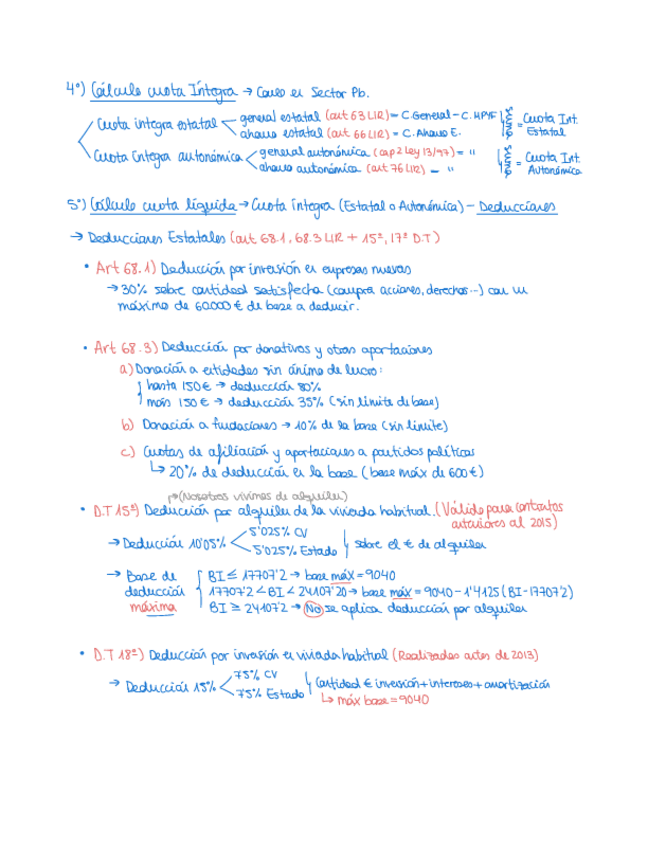 4º) Cálculo cuota Íntegra → Como en Sector Pb.
Cuota íntegra estatal
general estatal (art 63 LIR) = C. General - C. MPYF
ahorro estatal (art 66 LIR) = C. Ahorro E.
suma = Cuota Int. Estatal
Cuota íntegra autonómica
general autonómica (cap 2 Ley 13/97) = "
ahorro autonómica (art 76 LIR) = "
suma = Cuota Int. Autonómica
5º) Cálculo cuota líquida → Cuota íntegra (Estatal o Autonómica) - Deducciones
→ Deducciones Estatales (art 68.1, 68.3 LIR + 15ª, 17ª D.T)
• Art 68.1) Deducción por inversión en empresas nuevas
→ 30% sobre cantidad satisfecha (compra acciones, derechos...) con un
máximo de 60.000 € de base a deducir.
• Art 68.3) Deducción por donativos y otras aportaciones
a) Donación a entidades sin ánimo de lucro:
hasta 150 € → deducción 80%
más 150 € → deducción 35% (sin límite de base)
b) Donación a fundaciones → 10% de la base (sin límite)
c) Cuotas de afiliación y aportaciones a partidos políticos
↳ 20% de deducción en la base (base máx de 600 €)
→ (Nosotros vivimos de alquiler)
• D.T 15ª) Deducción por alquiler de la vivienda habitual. (Válido para contratos
anteriores al 2015)
→ Deducción 10'05%
5'025% CV
5'025% Estado
sobre el € de alquiler
→ Base de
deducción
máxima
BI ≤ 17707'2 → base máx = 9040
17707'2 < BI < 24107'20 → base máx = 9040 - 1'4125 (BI - 17707'2)
BI ≥ 24107'2 → No se aplica deducción por alquiler
• D.T 18ª) Deducción por inversión en vivienda habitual (Realizadas antes de 2013)
→ Deducción 15%
7'5% CV
7'5% Estado
Cantidad € inversión + intereses + amortización
↳ máx base = 9040